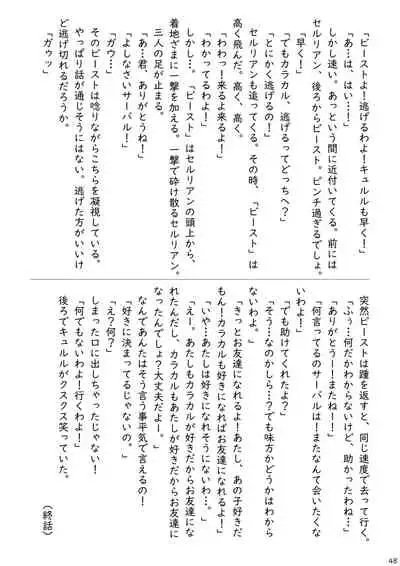 「ビーストよ！逃げるわよ！キュルルも早く！」
「あ…は、はい…！」
しかし速い。あっという間に近付いてくる。前には
セルリアン、後ろからビースト。ピンチ過ぎるでしょ。
「早く！」
「でもカラカル、逃げるってどっちへ？」
「とにかく逃げるの！」
セルリアンも追ってくる。その時、「ビースト」は
高く飛んだ。高く、高く。
「わわっ！来るよ来るよ！」
「わかってるわよ！」
しかし…。「ビースト」はセルリアンの頭上から、
着地ざまに一撃を加える。一撃で砕け散るセルリアン。
三人の足が止まる。
「あ…君、ありがとうね！」
「よしなさいサーバル！」
「ガウ…」
そのビーストは唸りながらこちらを凝視している。
やっぱり話が通じそうにはない。逃げた方がいいけ
ど逃げ切れるだろうか。
「ガゥッ」
突然ビーストは踵を返すと、同じ速度で去って行く。
「ふぅ…何だかわからないけど、助かったわね…」
「ありがとうー！またねー！」
「何言ってるのサーバルは！またなんて会いたくな
いわよ！」
「でも助けてくれたよ？」
「そう…なのかしら…？でも味方かどうかはわから
ないわよ。」
「きっとお友達になれるよ！あたし、あの子好きだ
もん！カラカルも好きになればお友達になれるよ！」
「いや…あたしは好きになれそうにないわ…。」
「えー。あたしもカラカルが好きだからお友達にな
れたんだし、カラカルもあたしが好きだからお友達に
なったんでしょ？大丈夫だよー。」
なんであんたはそう言う事平気で言えるの！
「好きに決まってるじゃないの。」
「え？何？」
しまった口に出しちゃったじゃない！
「何でもないわよ！行くわよ！」
後ろでキュルルがクスクス笑っていた。
（終話）
48